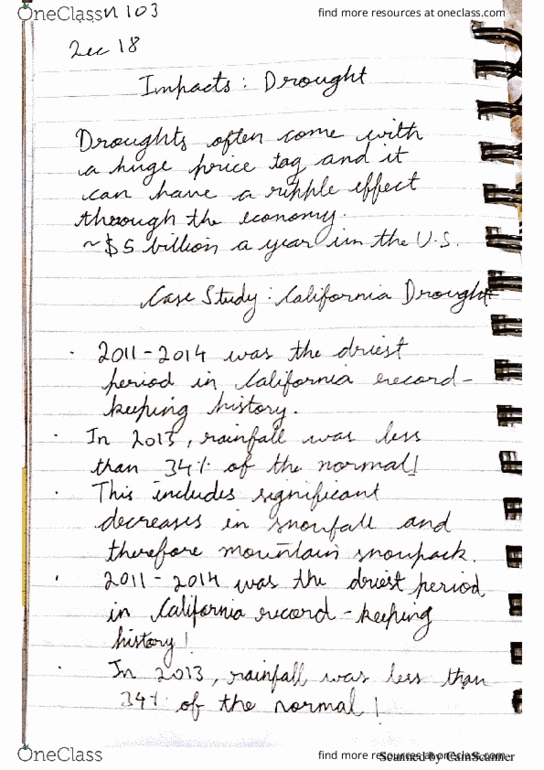 OneClass n 103
find more resources at oneclass.com
Lec 18
Impacts : Drought
Droughts often come with
a huge price tag and it
can have a ripple effect
through the economy.
~ $5 billion a year in the U.S.
Case Study : California Drought
· 2011-2014 was the driest
period in California record-
keeping history.
· In 2013, rainfall was less
than 34% of the normal!
· This includes significant
decreases in snowfall and
therefore mountain snowpack.
· 2011 - 2014 was the driest period
in California record - keeping
history!
· In 2013, rainfall was less than
34% of the normal!
OneClass
find more resources at oneclass.com
Scanned by CamScanner